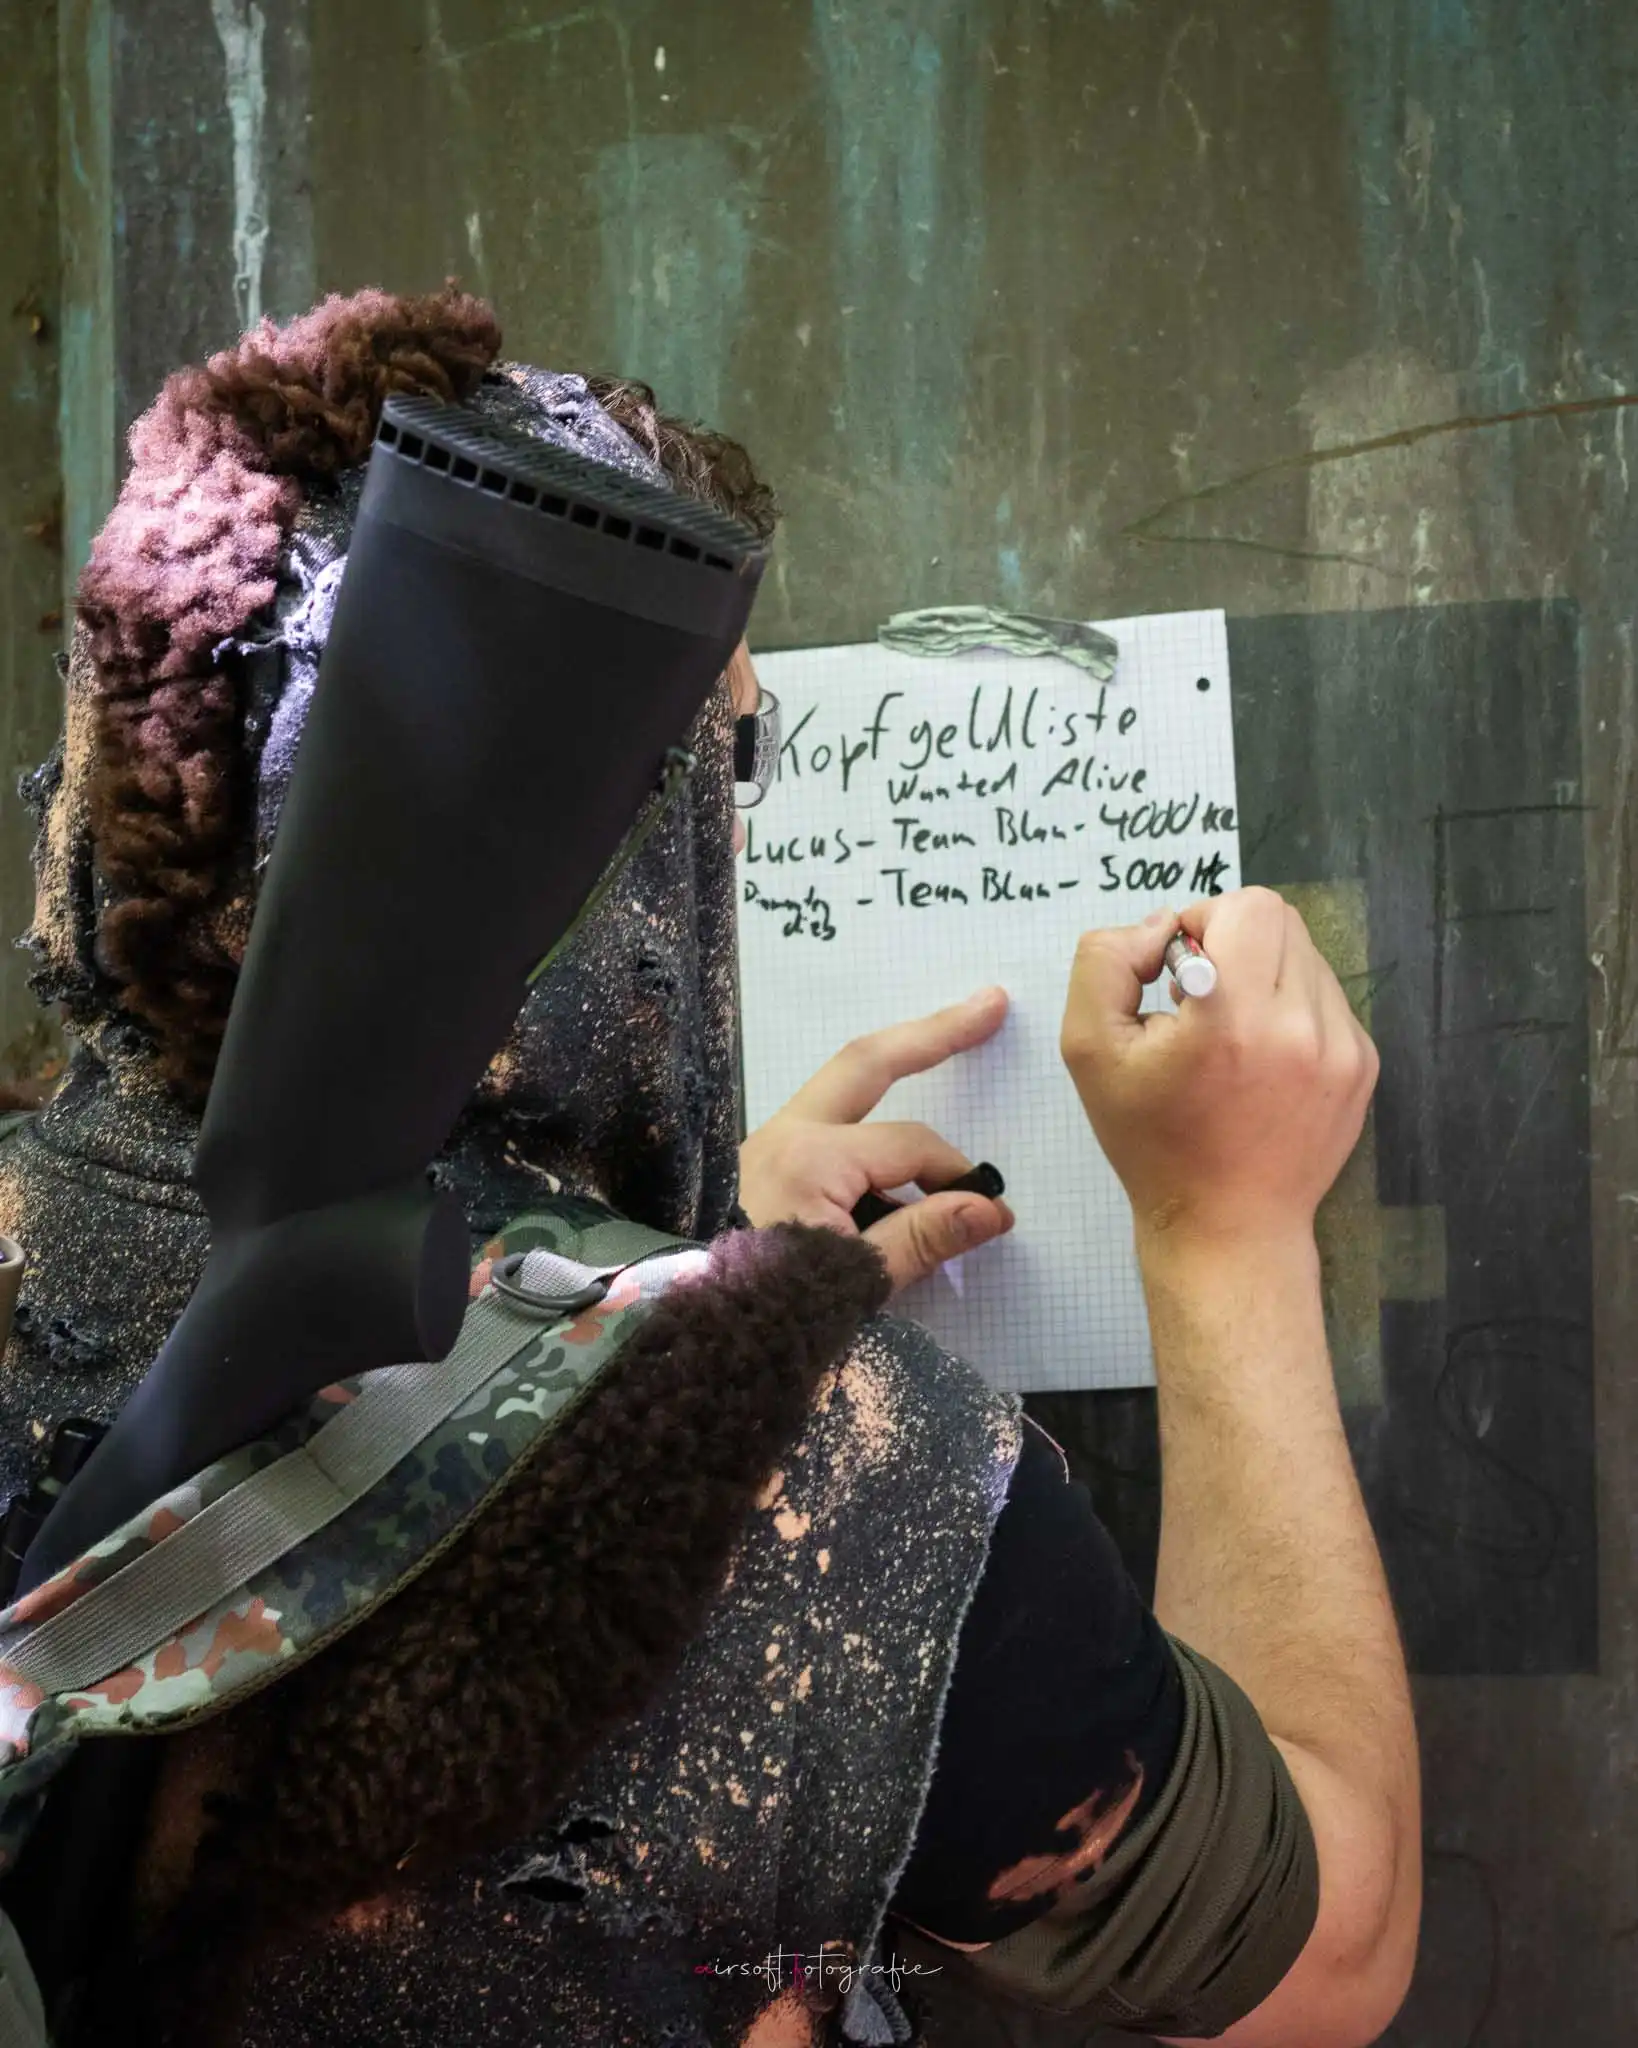 Kopfgeldliste
Wanted Alive
Lucas - Team Blau - 4000
- Team Blau - 5000
airsoft.fotografie